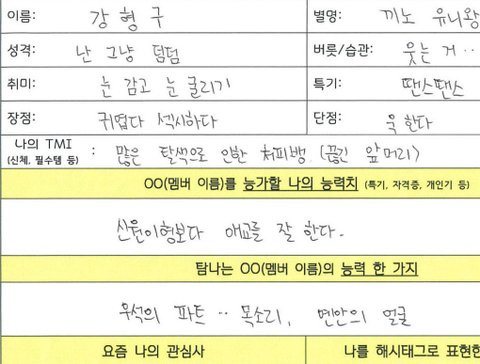 이름: 강형구 별명: 끼노 유니왕
성격: 난 그냥 덤덤 버릇/습관: 웃는 거..
취미: 눈 감고 눈 굴리기 특기: 땐스땐스
장점: 귀엽다 섹시하다 단점: 욱 한다
나의 TMI (신체, 필수템 등) : 많은 탈색으로 인한 처피뱅. (끊긴 앞머리)
OO(멤버 이름)를 능가할 나의 능력치 (특기, 자격증, 개인기 등)
신원이형보다 애교를 잘 한다.
탐나는 OO(멤버 이름)의 능력 한 가지
우석의 파트.. 목소리, 옌안의 얼굴
요즘 나의 관심사 나를 해시태그로 표현한